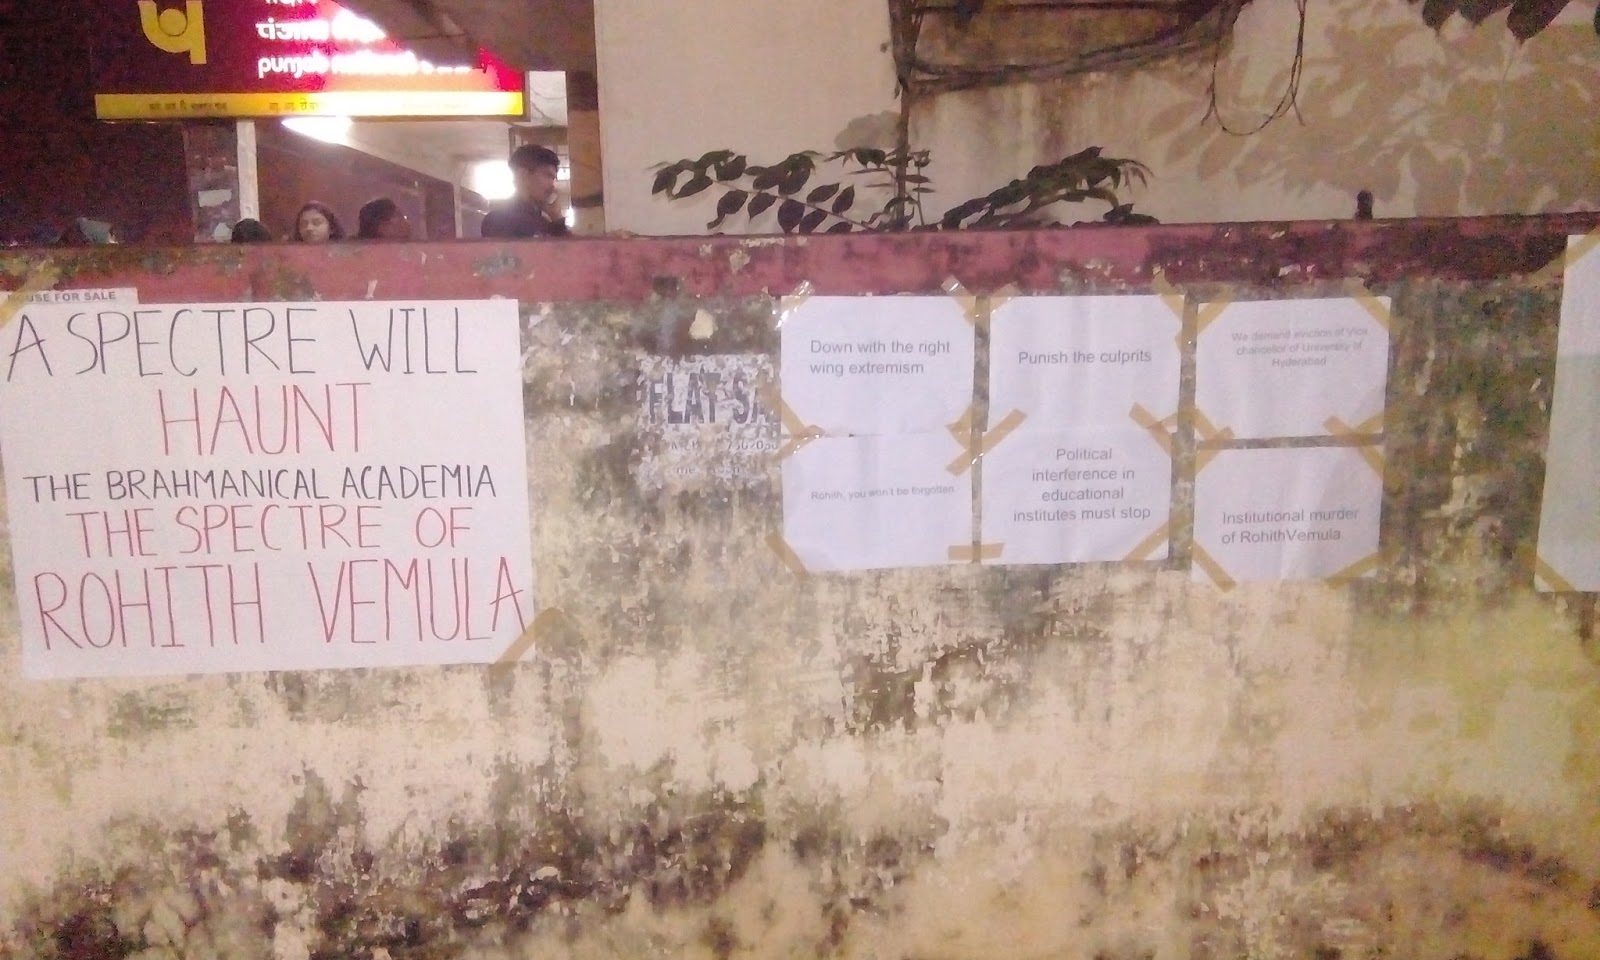 punjab
HOUSE FOR SALE
A SPECTRE WILL
HAUNT
THE BRAHMANICAL ACADEMIA
THE SPECTRE OF
ROHITH VEMULA
FLAT
Down with the right
wing extremism
Punish the culprits
We demand eviction of Vice
chancellor of University of
Hyderabad
Rohith, you won't be forgotten
Political
interference in
educational
institutes must stop
Institutional murder
of RohithVemula